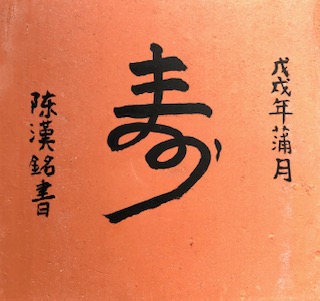 戊戌年蒲月
寿
陈漢銘書